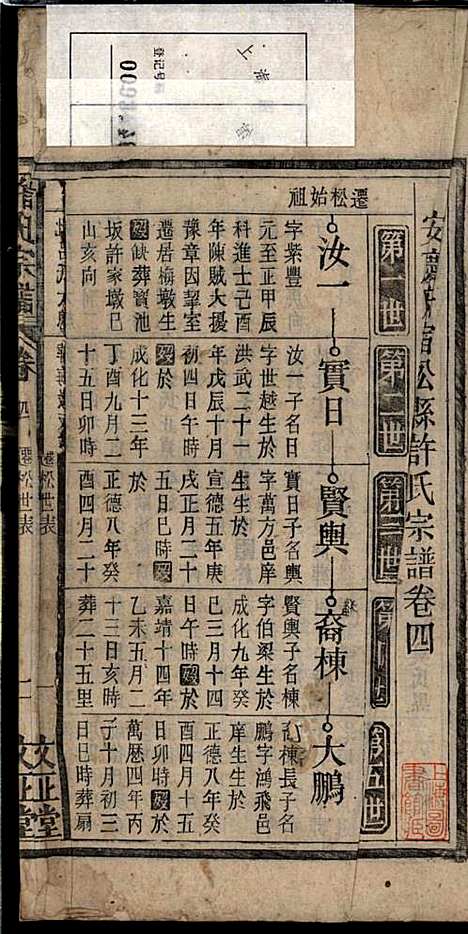 安徽宿松縣許氏宗譜卷四
第一世
第二世
第三世
第四世
第五世
遷松始祖
汝一
實日
賢輿
裔棟
大鵬
字紫豐
元至正甲辰
科進士己酉
年陳賊大擾
豫章因挈室
遷居梅墩生
缺葬寶池
坂許家墩巳
山亥向
汝一子名日
字世越生於
洪武二十一
年戊辰十月
初四日午時
歿於
成化十三年
丁酉九月二
十五日卯時
實日子名輿
字萬方邑庠
生生於
宣德五年庚
戌正月二十
五日巳時歿
於
正德八年癸
酉四月二十
賢輿子名棟
字伯梁生於
成化九年癸
巳三月十四
日午時歿於
嘉靖十四年
乙未五月二
十三日亥時
葬二十五里
棟長子名
鵬字鴻飛邑
庠生生於
正德八年癸
酉四月十五
日卯時歿於
萬歷四年丙
子十月初三
日巳時葬扇
宗譜
卷四
遷松世表
文正堂
登记号
上海